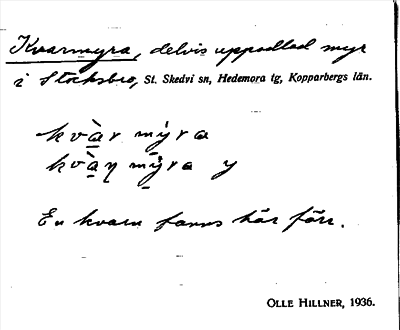 Kvarnmyra, delvis uppodlad myr
i Stocksbro, St. Skedvi sn, Hedemora tg, Kopparbergs län.
kvàr mýra
kvàɳ mýra y
En kvarn fanns här förr.
OLLE HILLNER, 1936.